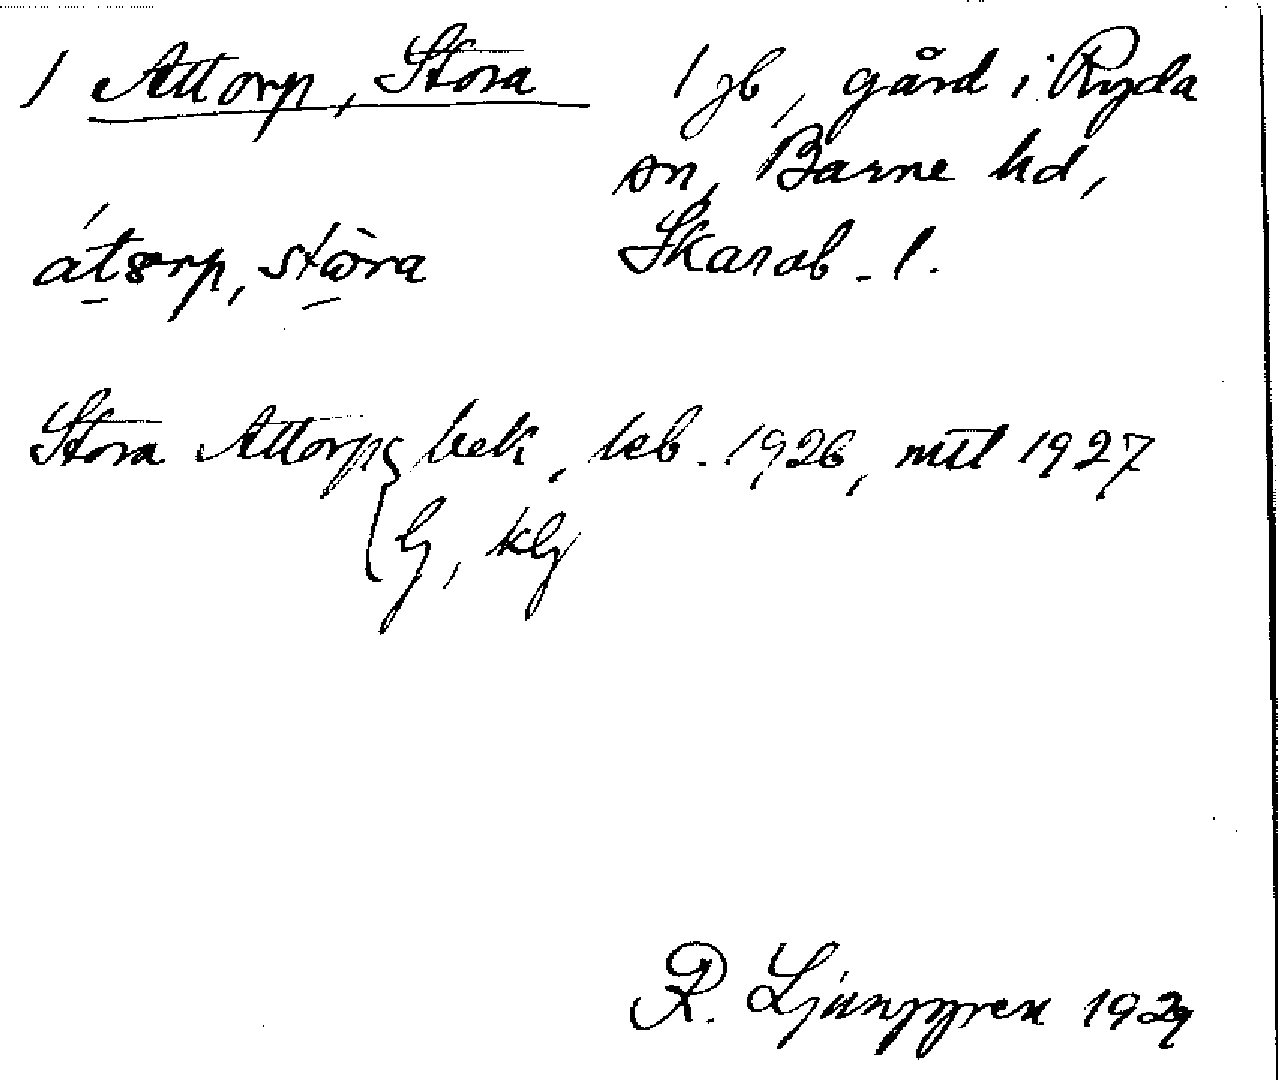 / Attorp, Stora
1 jb, gård i Ryda
sn, Barne hd,
Skarab. l.
átorp, stòra
Stora Attorp bek, leb. 1926, mtl 1927
G, kG
R. Ljunggren 1929